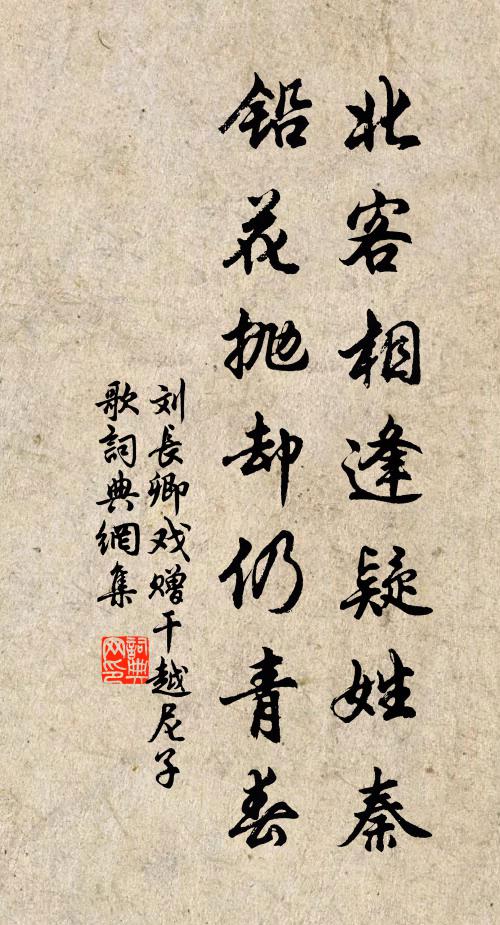 北客相逢疑姓秦
铅花抛却仍青春
刘長卿戏赠干越尼子
歌詞典網集
詞典網印